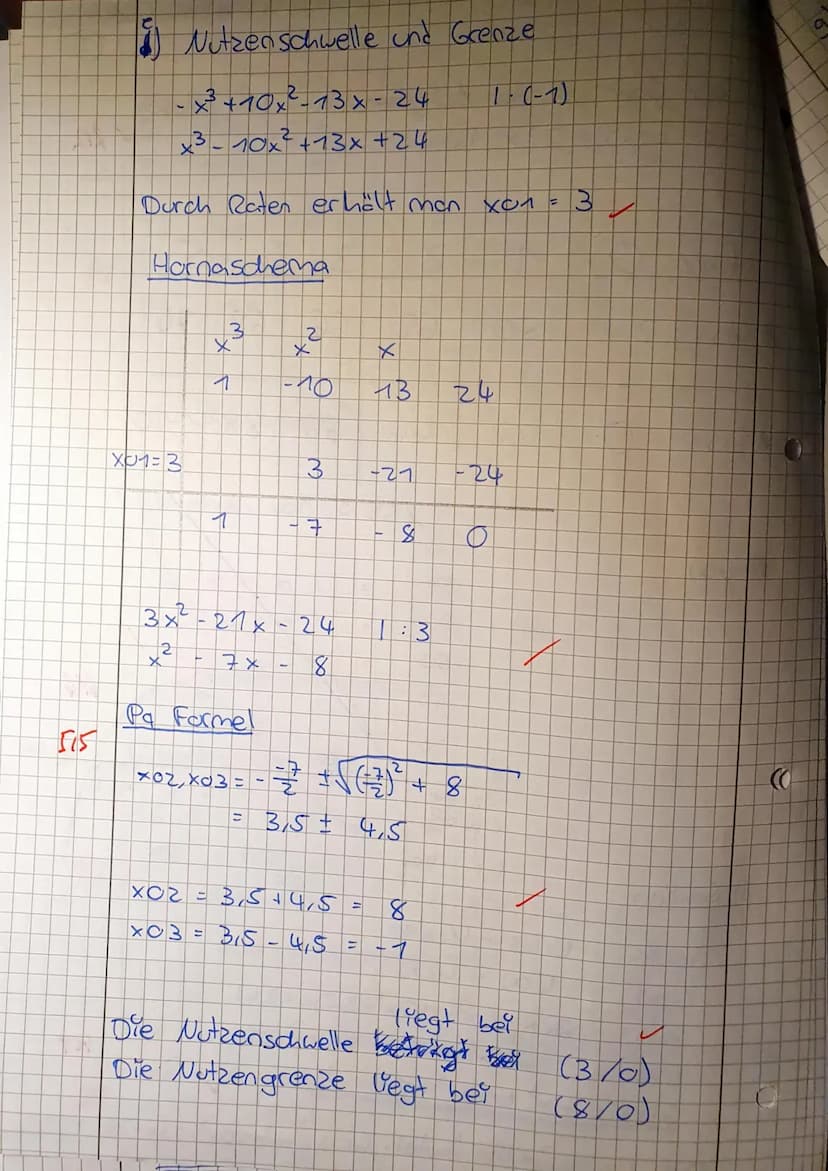 i) Nutzenschwelle und Grenze
- x³ + 10x² - 13x - 24 | · (-1)
x³ - 10x² + 13x + 24
Durch Raten erhält man x01 = 3 ✓
Hornaschema
x³ x² x
1 -10 13 24
x01=3 3 -21 -24
1 -7 -8 0
3x² - 21x - 24 | : 3
x² - 7x - 8
Pq Formel
5,5
x02, x03 = - -7/2 ± √(-7/2)² + 8
= 3,5 ± 4,5
x02 = 3,5 + 4,5 = 8
x03 = 3,5 - 4,5 = -1
Die Nutzenschwelle liegt bei (3/0) ✓
Die Nutzengrenze liegt bei (8/0)